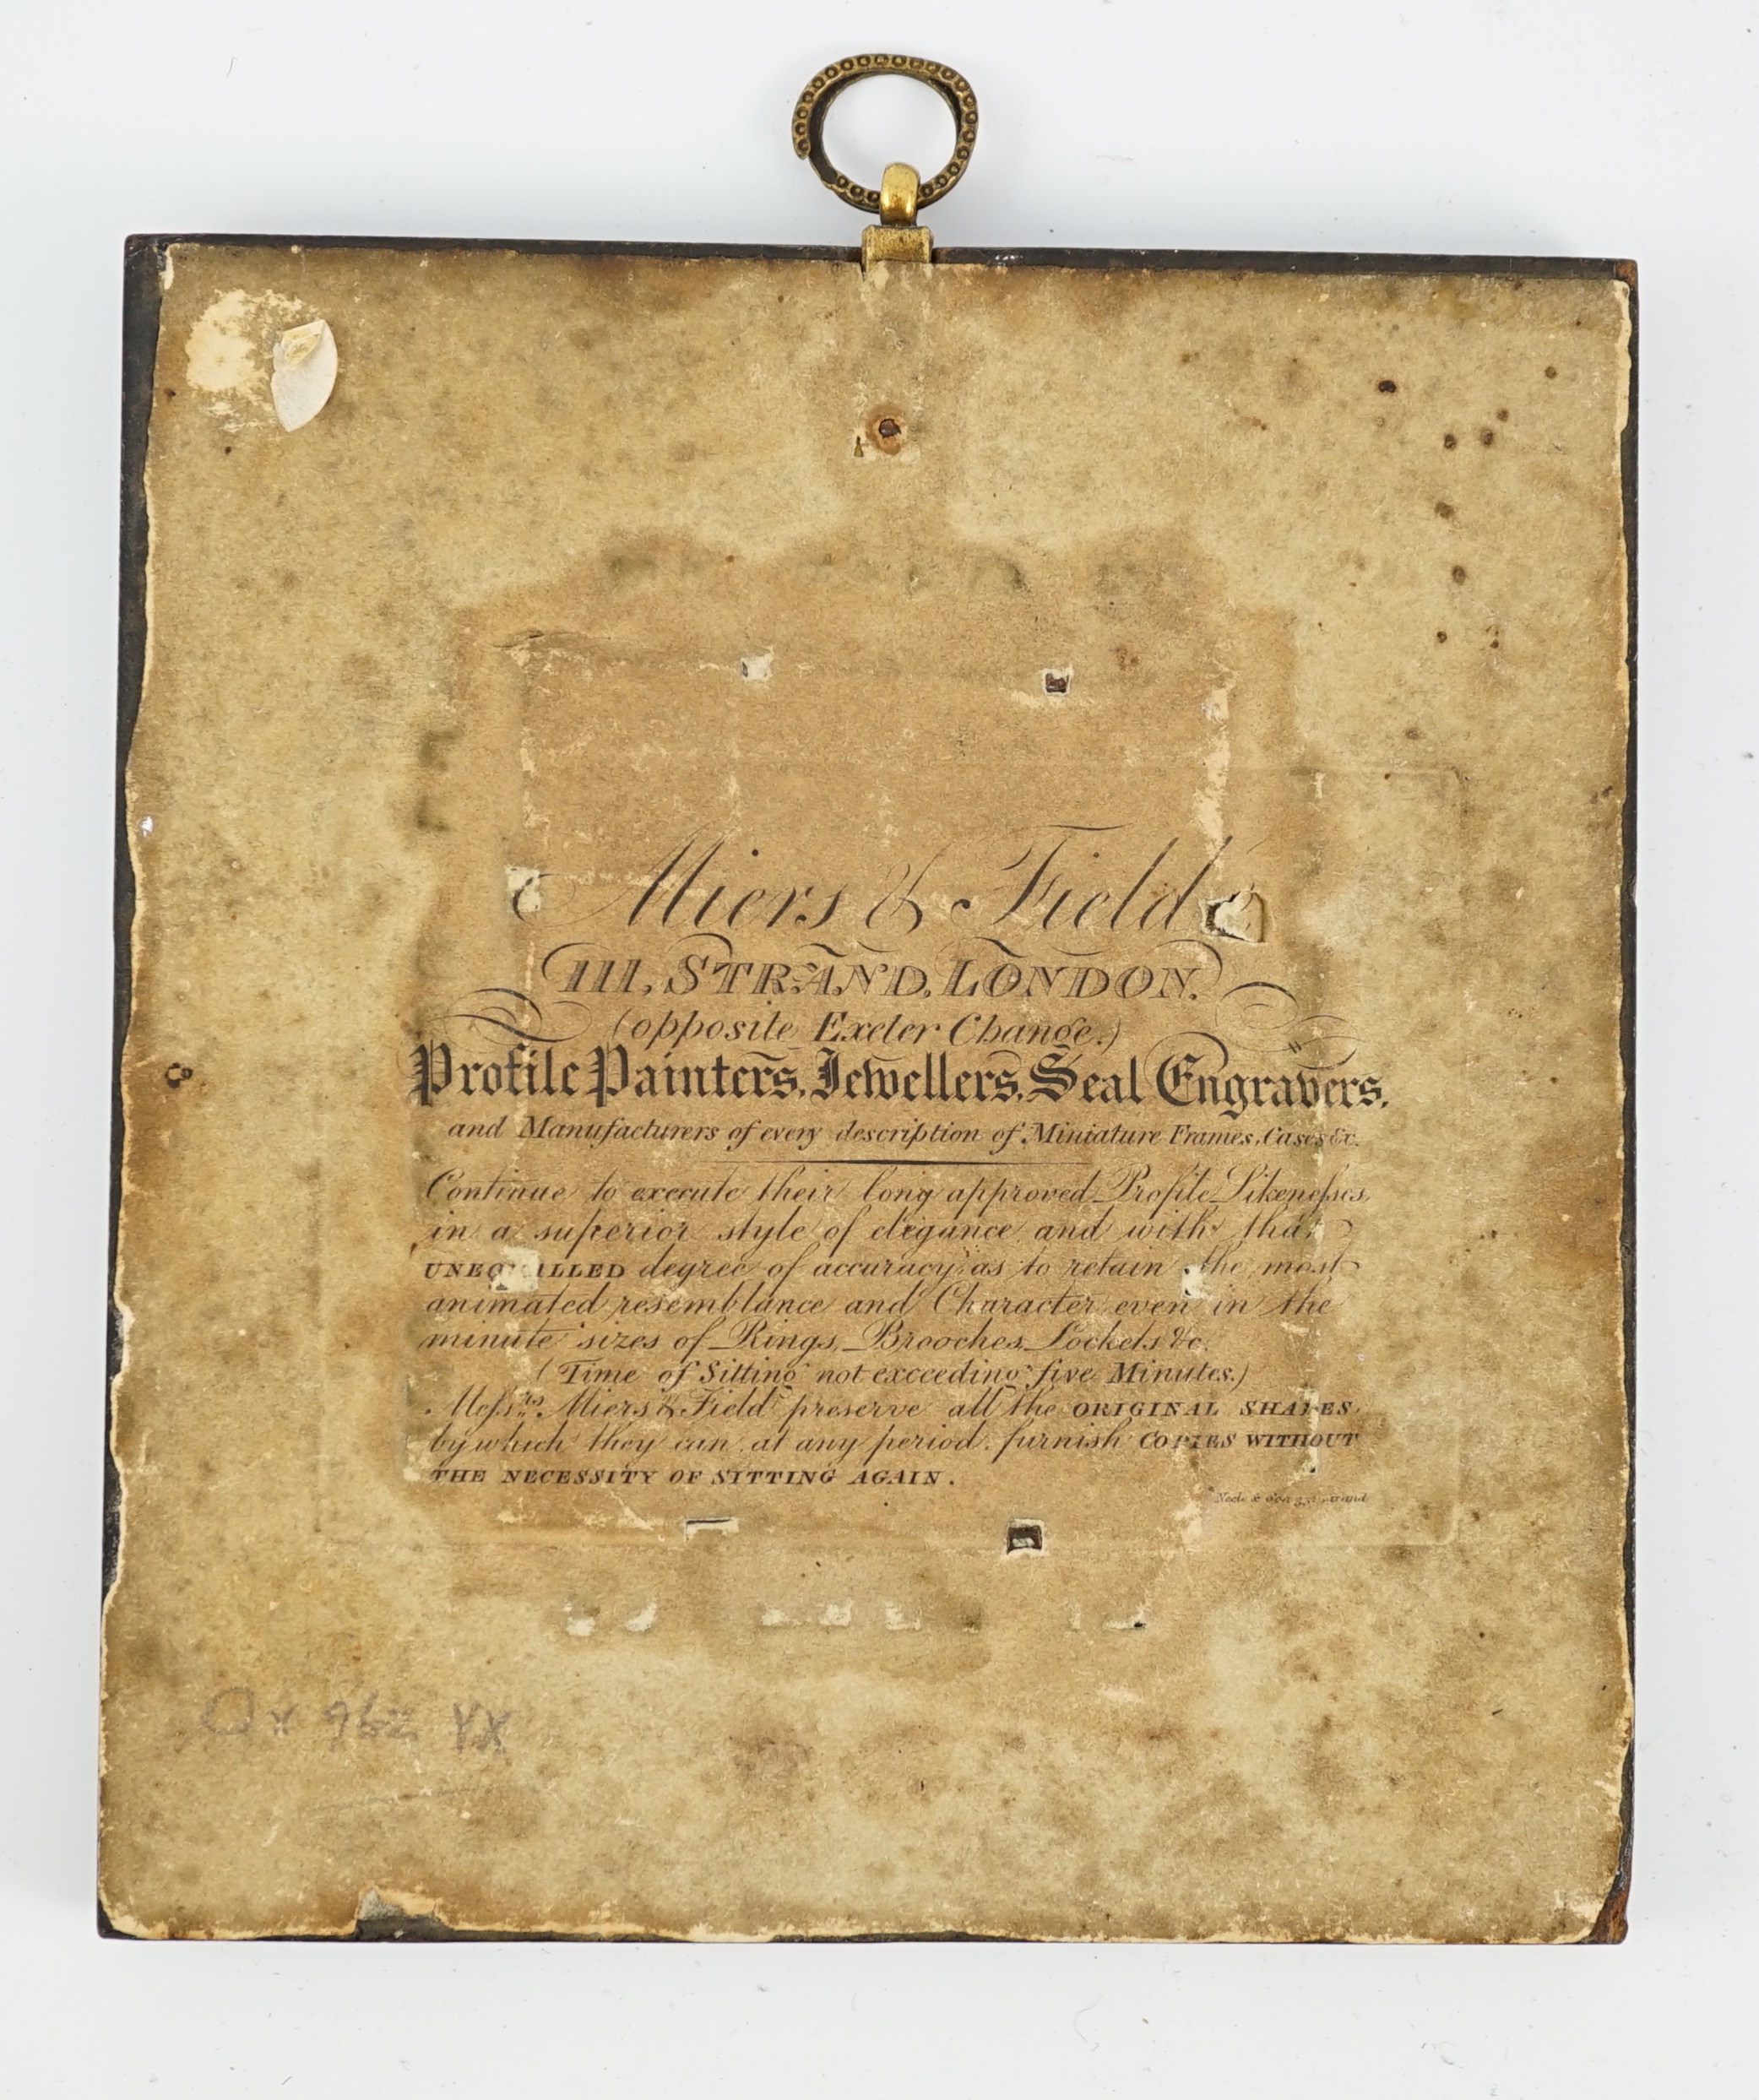 Miers & Field
111, STRAND, LONDON.
(opposite Exeter Change.)
Profile Painters, Jewellers, Seal Engravers,
and Manufacturers of every description of Miniature Frames, Cases &c.
Continue to execute their long approved Profile Likeneſses,
in a superior style of elegance and with that
UNEQUALLED degree of accuracy as to retain the most
animated resemblance and Character even in the
minute sizes of Rings, Brooches, Lockets &c.
(Time of Sitting not exceeding five Minutes.)
Meſsrs. Miers & Field preserve all the ORIGINAL SHADES
by which they can at any period furnish COPIES WITHOUT
THE NECESSITY OF SITTING AGAIN.
Neele & Son Strand